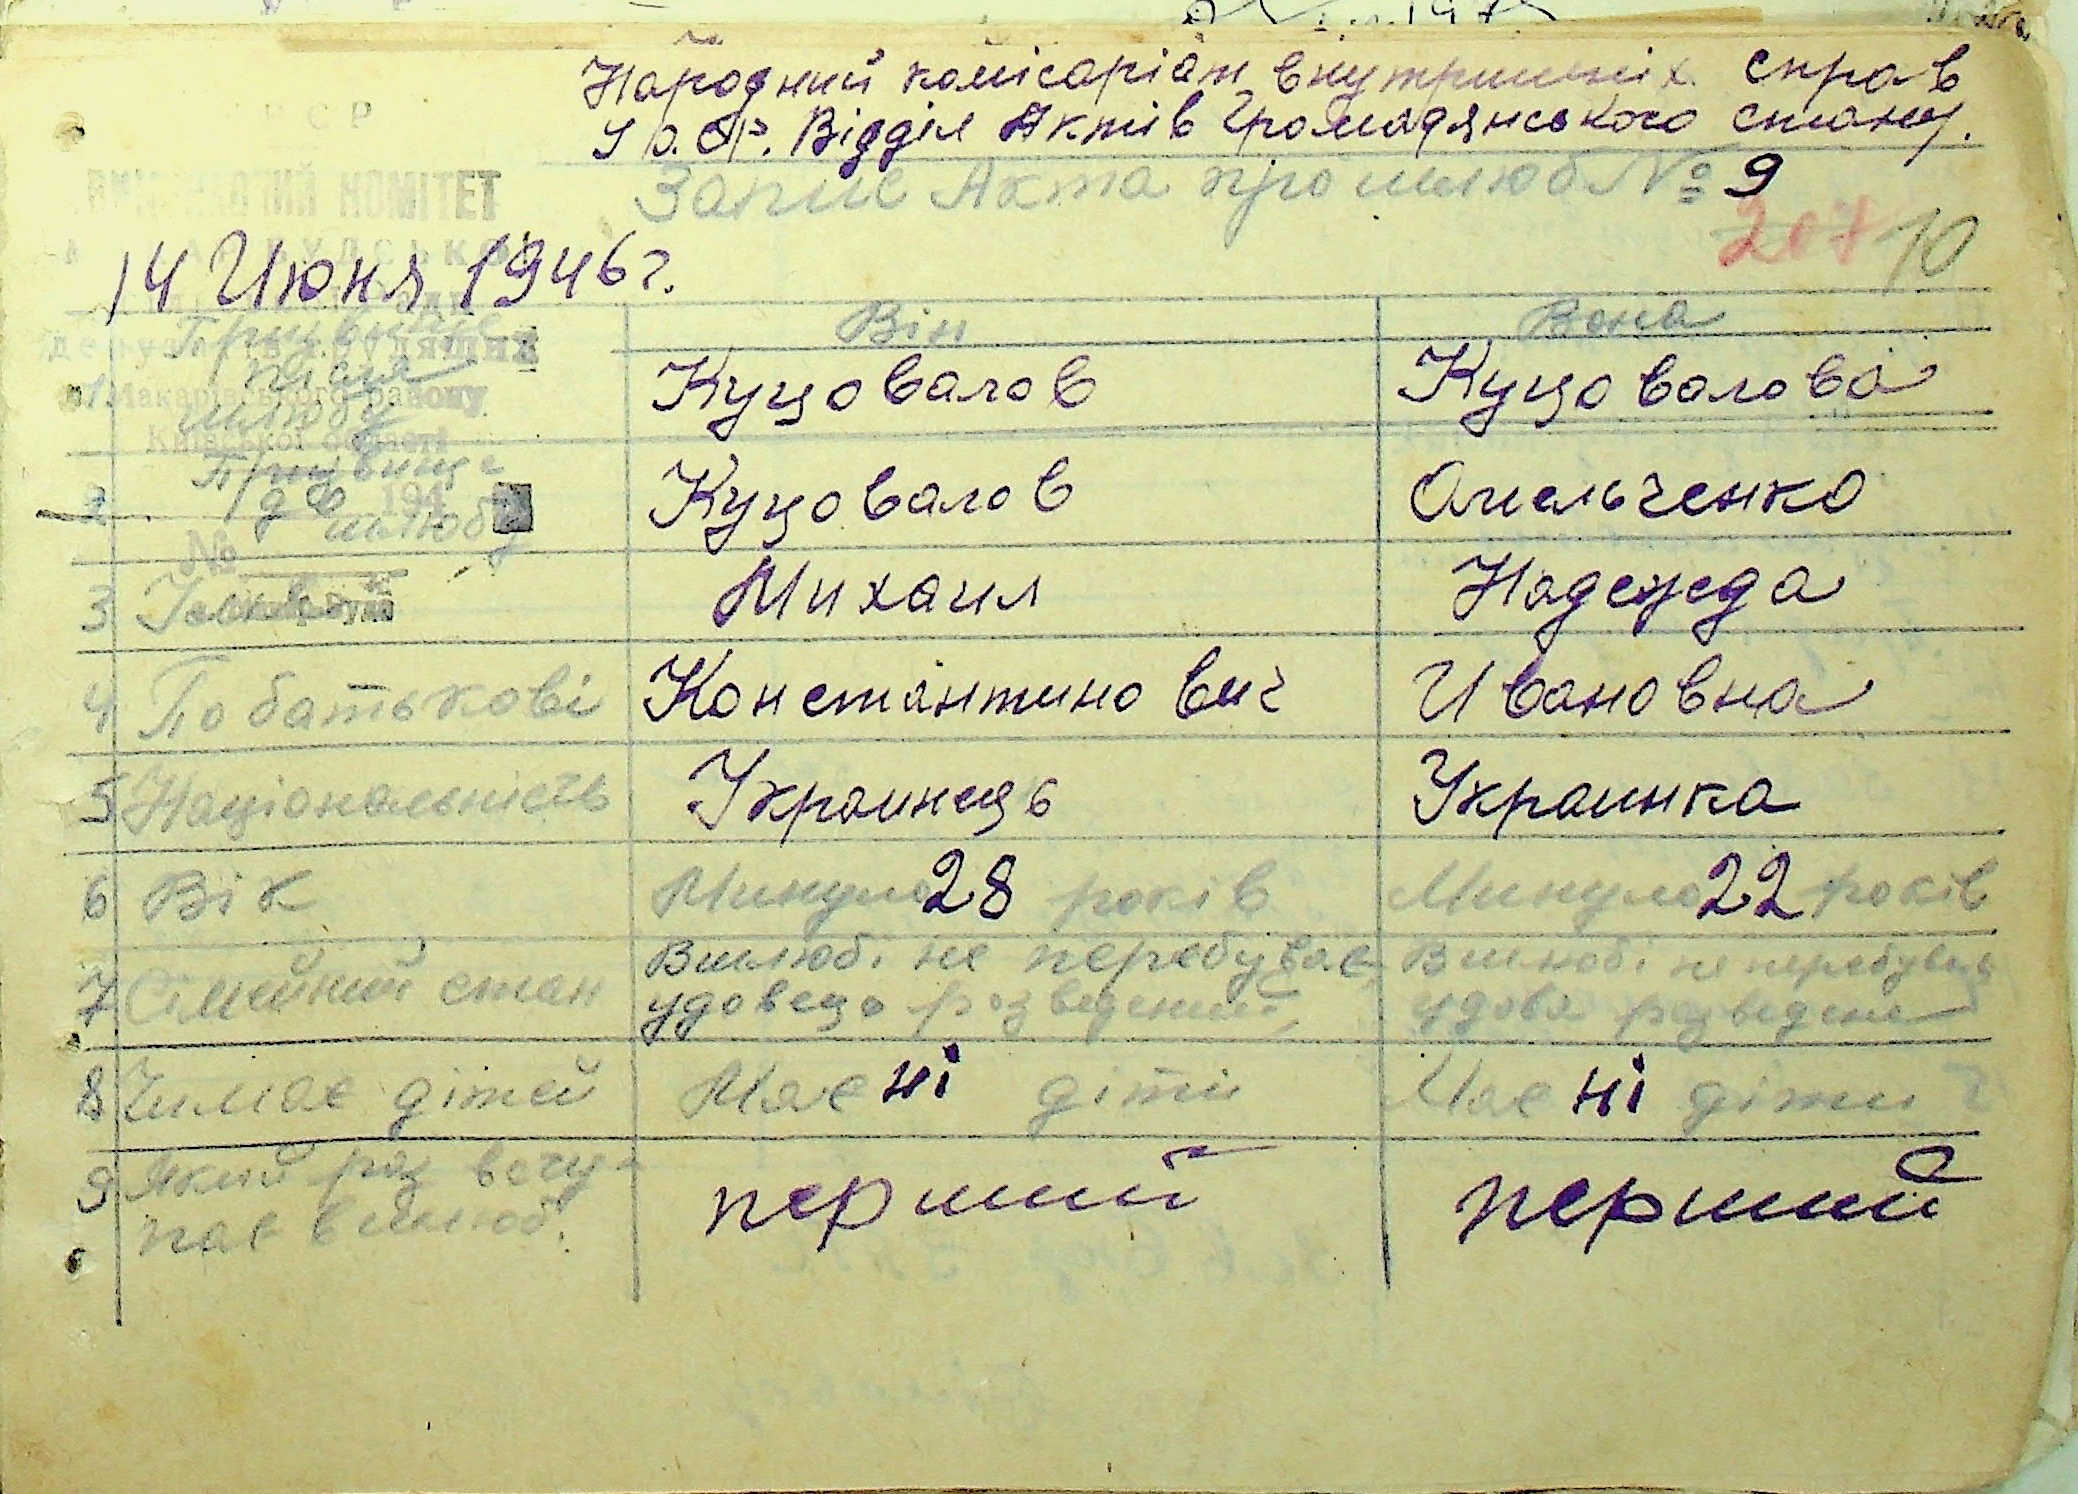 Народний комісаріат внутришніх справ
У.С.С.Р. Відділ Актів Громадянського стану.
Запис Акта про шлюб № 9
207 10
14 Июня 1946 г.
ВИКОНАВЧИЙ КОМІТЕТ
депутатів трудящих
Макарівського району
Київської області
194
№
Він Вона
1 Прізвище після шлюбу Куцовалов Куцовалова
2 Прізвище до шлюбу Куцовалов Омельченко
3 Михаил Надежда
4 По батькові Константинович Ивановна
5 Національність Украинець Украинка
6 Вік Минуло 28 років Минуло 22 років
7 Сімейний стан Вшлюбі не перебував, Вшлюбі не перебувала
удовець розведений, удова розведена
8 Чи має дітей Має ні діти Має ні діти
9 Який раз всту-
пає в шлюб. перший перший